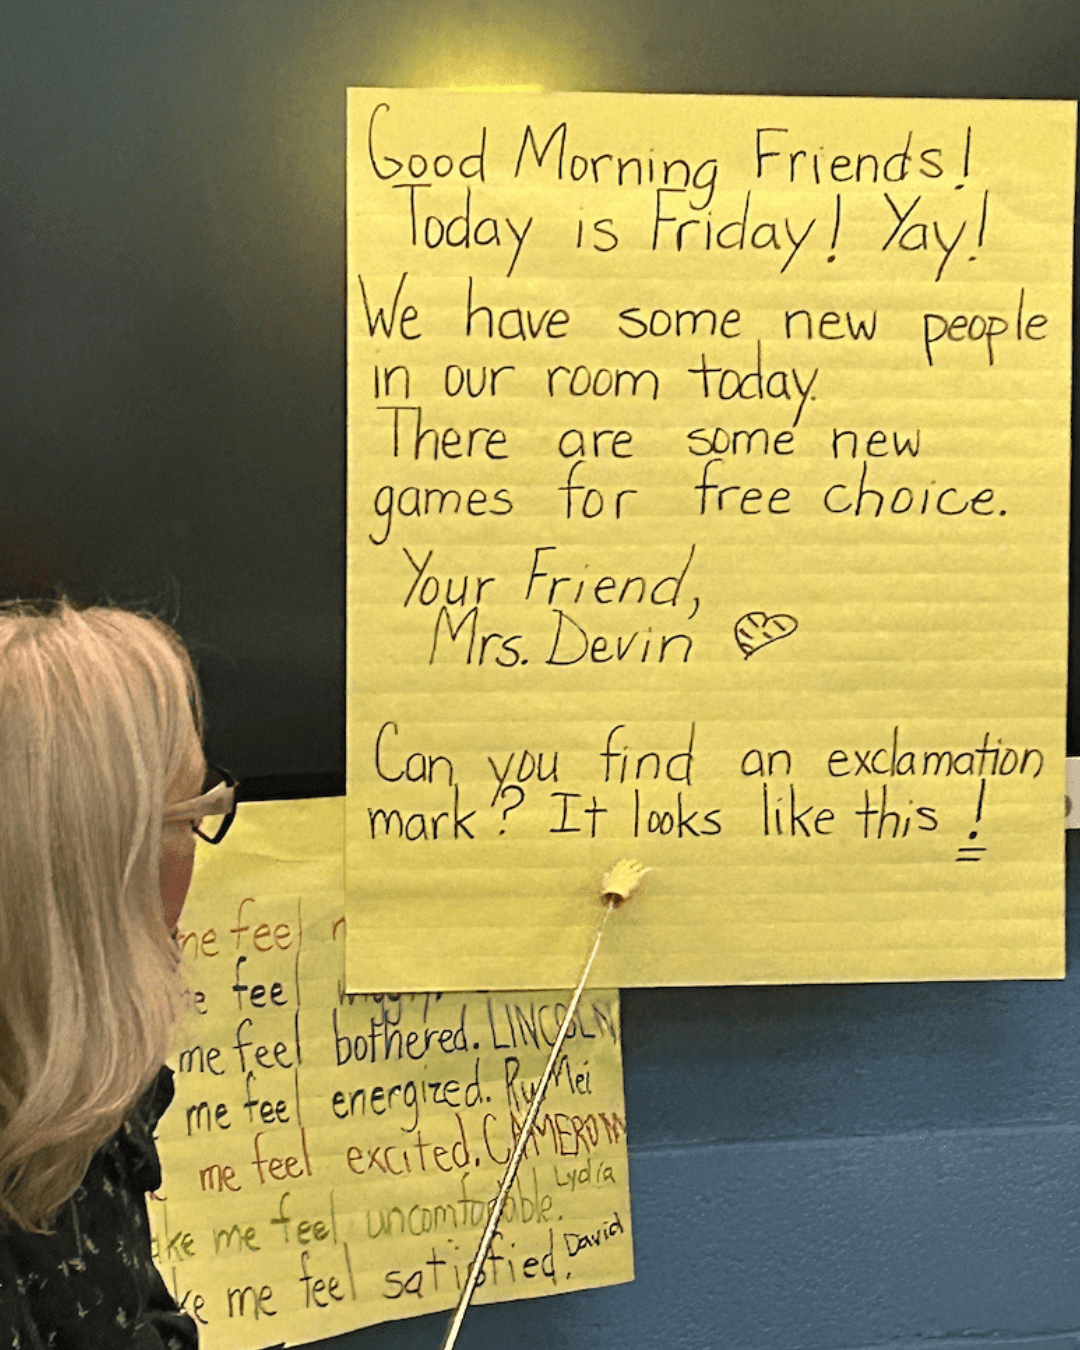 Good Morning Friends!
Today is Friday! Yay!
We have some new people
in our room today.
There are some new
games for free choice.
Your Friend,
Mrs. Devin
Can you find an exclamation
mark? It looks like this !
me feel
feel
me feel bothered. LINCOLN
me feel energized. Ru Mei
me feel excited. CAMERON
me feel uncomfortable. Lydia
me feel satisfied. David